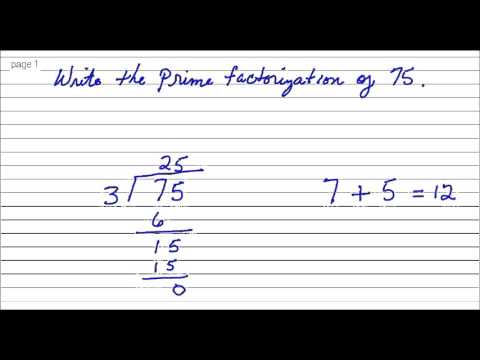 page 1
Write the Prime factorization of 75.
25
3 75
7 + 5 = 12
6
15
15
0